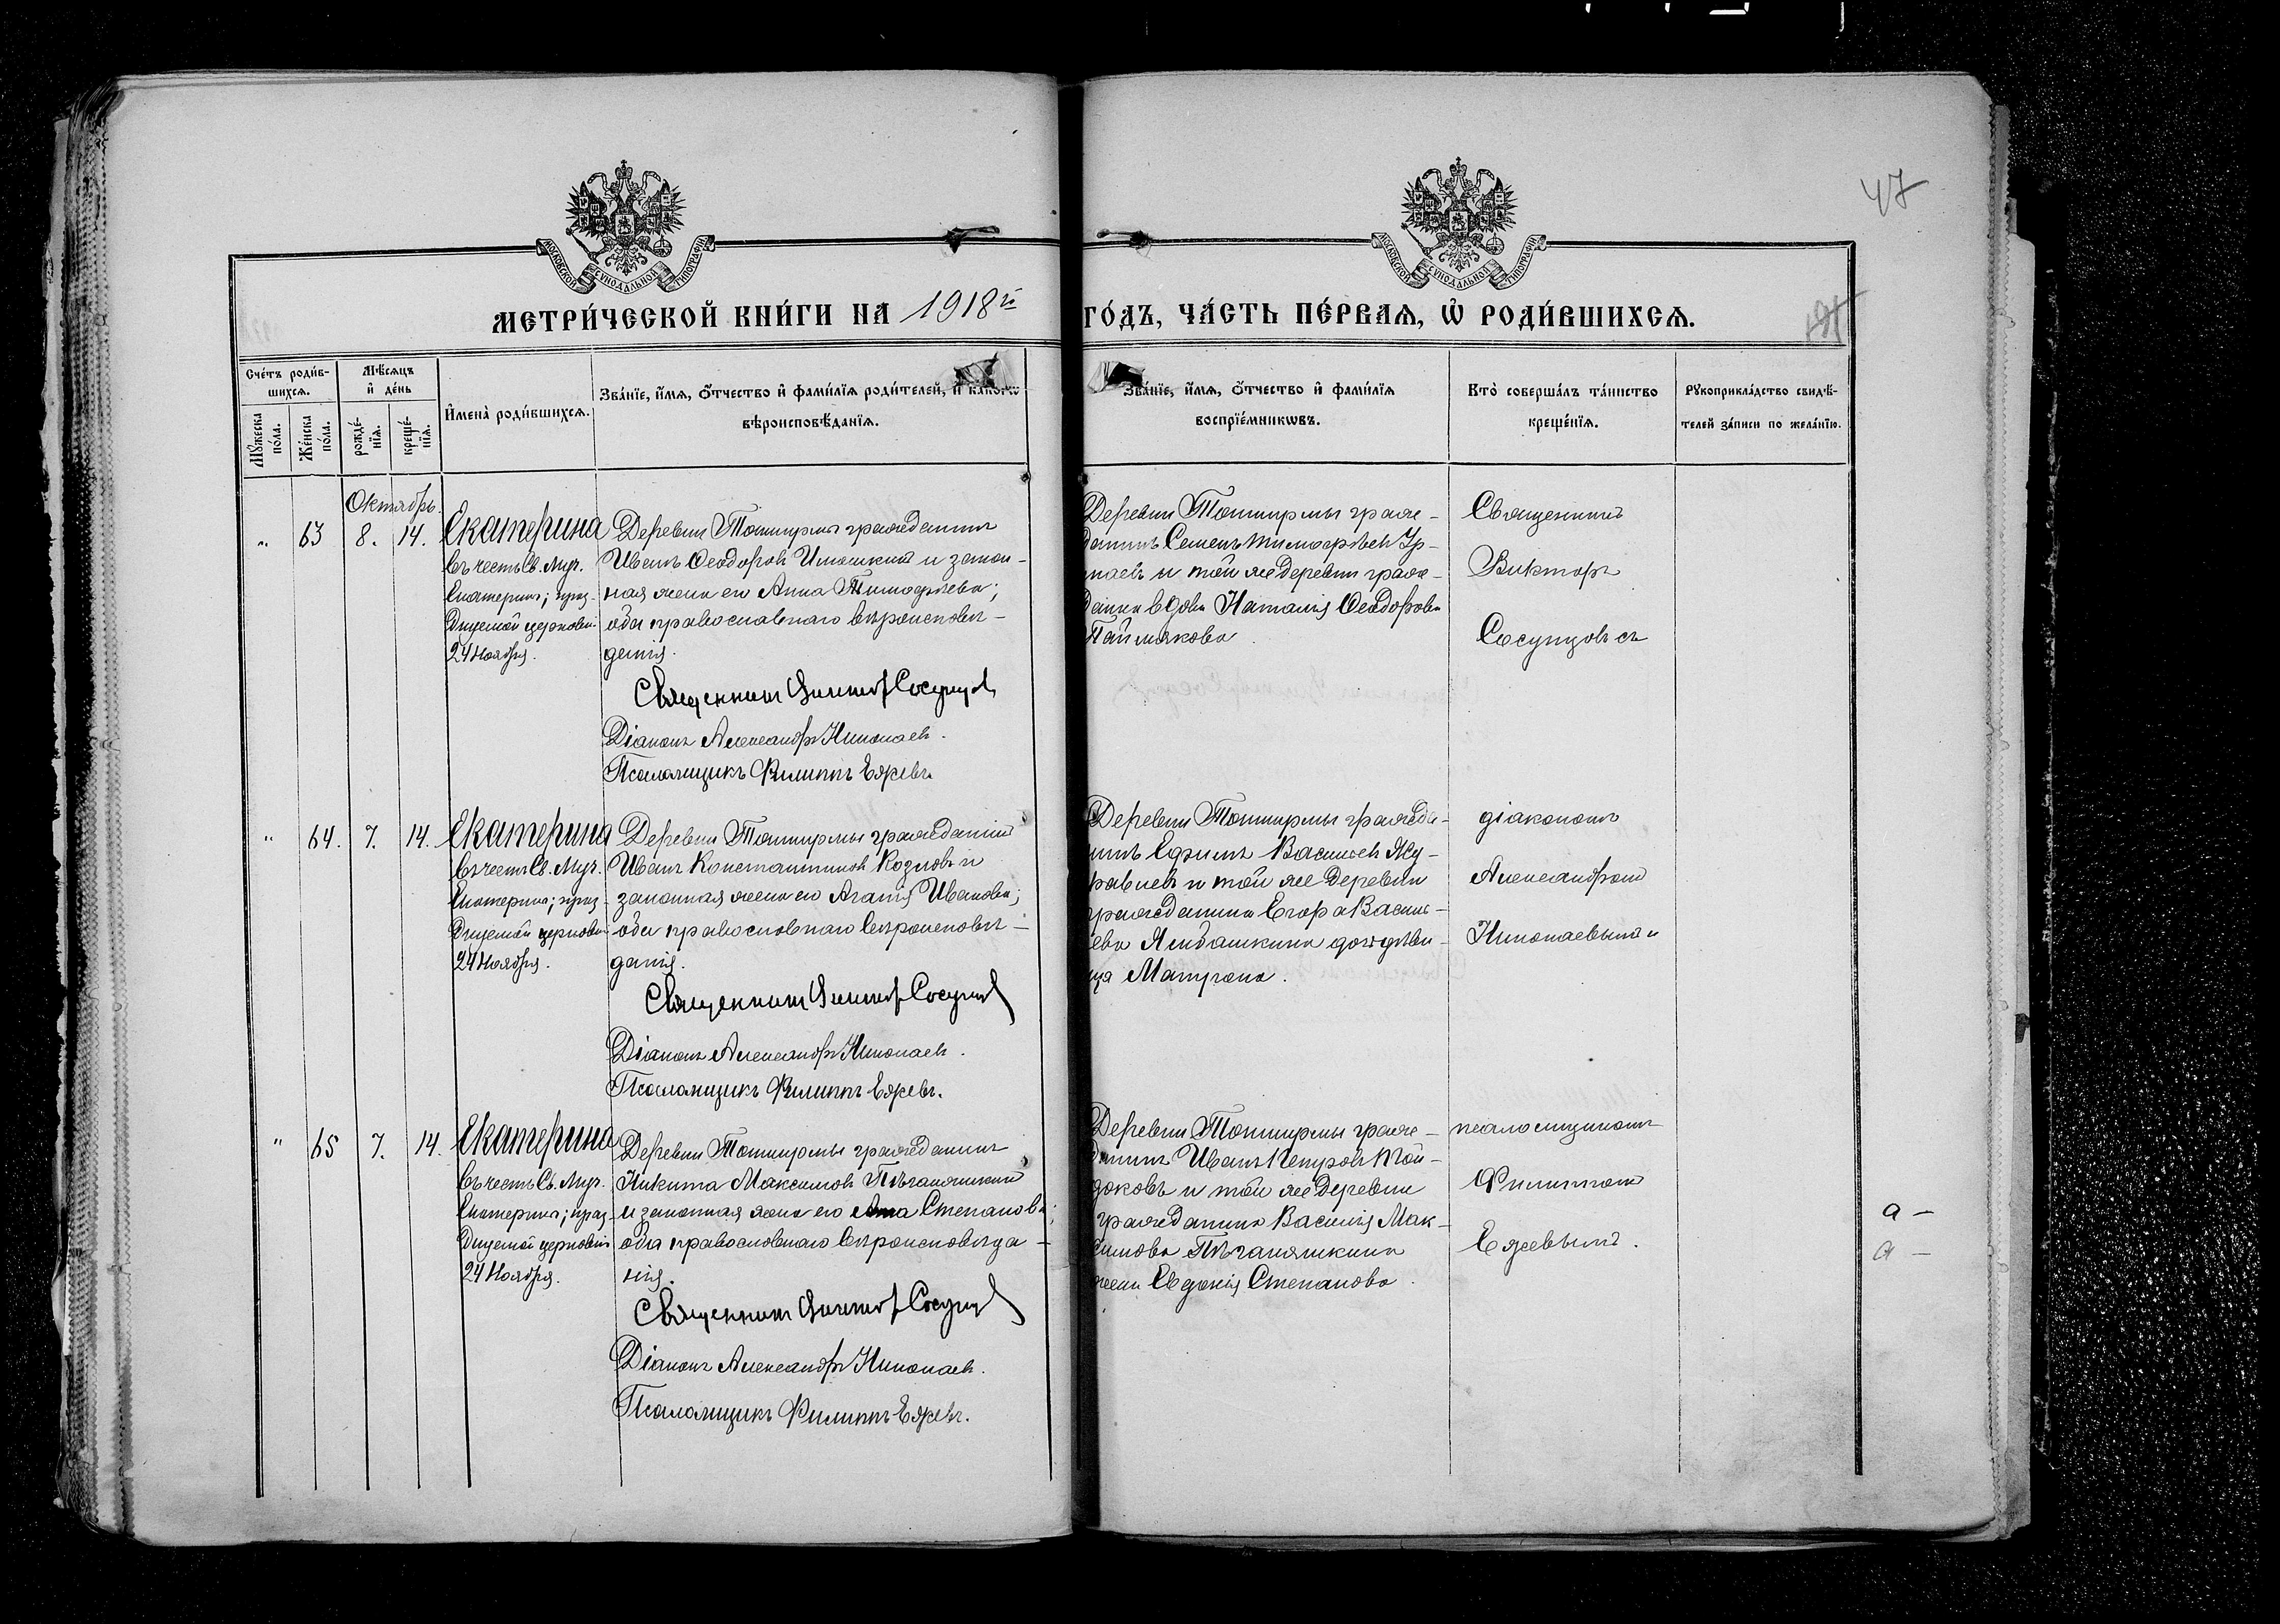 47
МОСКОВСКОЙ СѴНОДАЛЬНОЙ ТИПОГРАФІИ
МОСКОВСКОЙ СѴНОДАЛЬНОЙ ТИПОГРАФІИ
МЕТРИ́ЧЕСКОЙ КНИ́ГИ НА 1918й
ГО́ДЪ, ЧА́СТЬ ПЕ́РВАѦ, Ѡ҆ РОДИ́ВШИХСѦ.
Сче́тъ роди́в-
шихсѧ.
Мѹ́жеска
по́ла.
Же́нска
по́ла.
Мѣ́сѧцъ
и҆ де́нь
рожде́-
нїѧ.
креще́-
нїѧ.
И҆мена̀ роди́вшихсѧ.
Зва́нїе, и҆́мѧ, ѻ҆́тчество и҆ фами́лїѧ роди́телей, и҆ како́гѡ
вѣроисповѣ́данїѧ.
Зва́нїе, и҆́мѧ, ѻ҆́тчество и҆ фами́лїѧ
воспрїе́мникѡвъ.
Кто̀ соверша́лъ та́инство
креще́нїѧ.
Рꙋкоприкла́дство свидѣ́-
телей за́писи по жела́нїю.
Октябрь.
„ 63 8. 14.
Екатерина
въ честь Св. Муч.
Екатерины; праз-
днуемой церковью
24 Ноября.
Деревни Тоширмы гражданинъ
Иванъ Ѳеодоровъ и закон-
ная жена его Анна Тимофѣева;
оба православнаго вѣроисповѣ-
данія.
Священникъ Викторъ Сосунцовъ
Діаконъ Александръ Николаевъ.
Псаломщикъ Филиппъ Ежевъ.
Деревни Тоширмы граж-
данинъ Семенъ Тимофѣевъ Ур-
маевъ и той же деревни граж-
данка вдова Наталія Ѳеодорова
Паймякова.
Священникъ
Викторъ
Сосунцовъ съ
„ 64. 7. 14.
Екатерина
въ честь Св. Муч.
Екатерины; праз-
днуемой церковью
24 Ноября.
Деревни Тоширмы гражданинъ
Иванъ Константиновъ Козловъ и
законная жена его Агапія Иванова;
оба православнаго вѣроисповѣ-
данія.
Священникъ Викторъ Сосунцовъ
Діаконъ Александръ Николаевъ.
Псаломщикъ Филиппъ Ежевъ.
Деревни Тоширмы гражда-
нинъ Ефимъ Васильевъ Жу-
равлевъ и той же деревни
гражданина Егора Василь-
ева Яндашкина дочь дѣви-
ца Матрона.
діакономъ
Александромъ
Николаевымъ и
„ 65 7. 14.
Екатерина
въ честь Св. Муч.
Екатерины; праз-
днуемой церковью
24 Ноября.
Деревни Тоширмы гражданинъ
Никита Максимовъ Пѣганяшкинъ
и законная жена его Анна Степанова;
оба православнаго вѣроисповѣда-
нія.
Священникъ Викторъ Сосунцовъ
Діаконъ Александръ Николаевъ.
Псаломщикъ Филиппъ Ежевъ.
Деревни Тоширмы граж-
данинъ Иванъ Петровъ
и той же деревни
гражданина Василія Мак-
симова Пѣганяшкина
жена Евдокія Степанова.
псаломщикомъ
Филиппомъ
Ежевымъ.
а –
а –